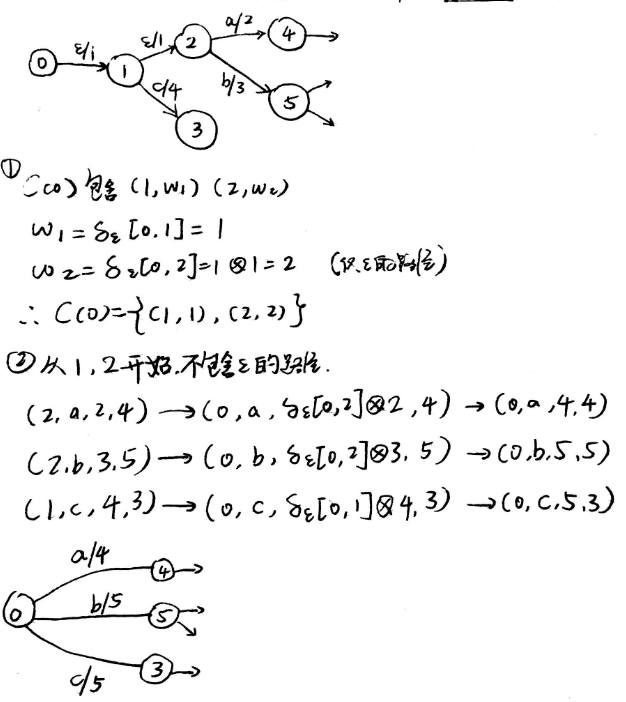 0 ε/1 1 ε/1 2 a/2 4
c/4 b/3 5
3
①
C(0) 包含 (1,w₁) (2,w₂)
w₁ = δε[0,1] = 1
w₂ = δε[0,2] = 1⊗1 = 2 (仅ε的路径)
∴ C(0) = {(1,1), (2,2)}
② 从1,2开始,不包含ε的路径.
(2,a,2,4) → (0,a,δε[0,2]⊗2,4) → (0,a,4,4)
(2,b,3,5) → (0,b,δε[0,2]⊗3,5) → (0,b,5,5)
(1,c,4,3) → (0,c,δε[0,1]⊗4,3) → (0,c,5,3)
a/4 4
0 b/5 5
c/5 3